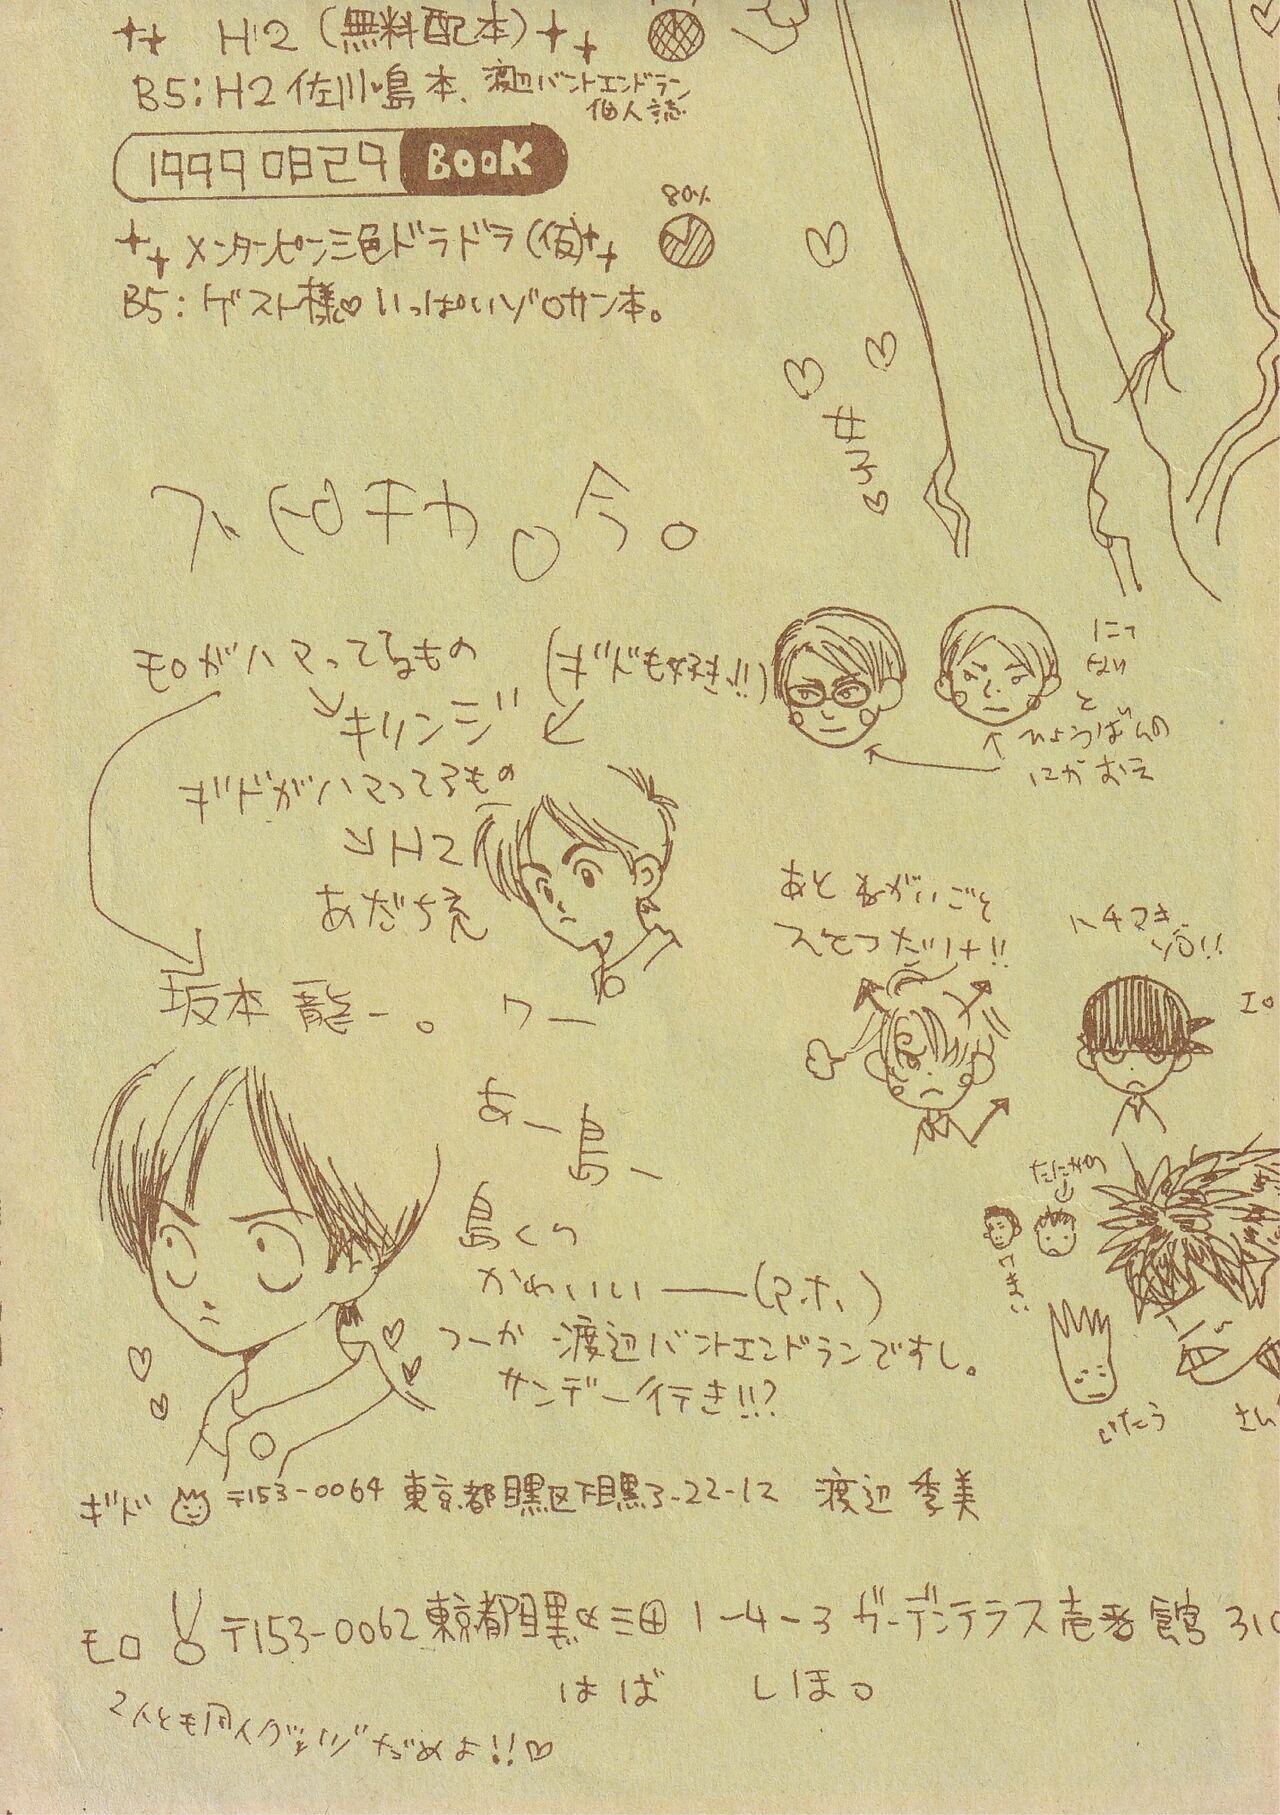 H2 (無料配本)
B5:H2 佐川・島本、渡辺バントエンドラン
個人誌
19990829 BOOK
80%
メンタンピン三色ドラドラ(仮)
B5:ゲスト様♡いっぱいゾロサン本。
女子♡
今。
モロがハマってるもの
(ギドも好き、!!)
キリンジ
ギドがハマってるもの
H2
あだち充
坂本 龍一。
にってないと
ひょうばんの
にがおえ
あと ねがいごと
ひとつだけ!!
ハチマキ
ゾロ!!
あー島ー
島くん
かわいいー(アホ、)
つーか 渡辺バントエンドランですし。
サンデー行き!!?
ギド 〒153-0064 東京都目黒区下目黒3-22-12 渡辺 季美
モロ 〒153-0062 東京都目黒区三田1-4-3 ガーデンテラス壱番館 310
はば しほ。
2人とも同人グッズだめよ!!♡